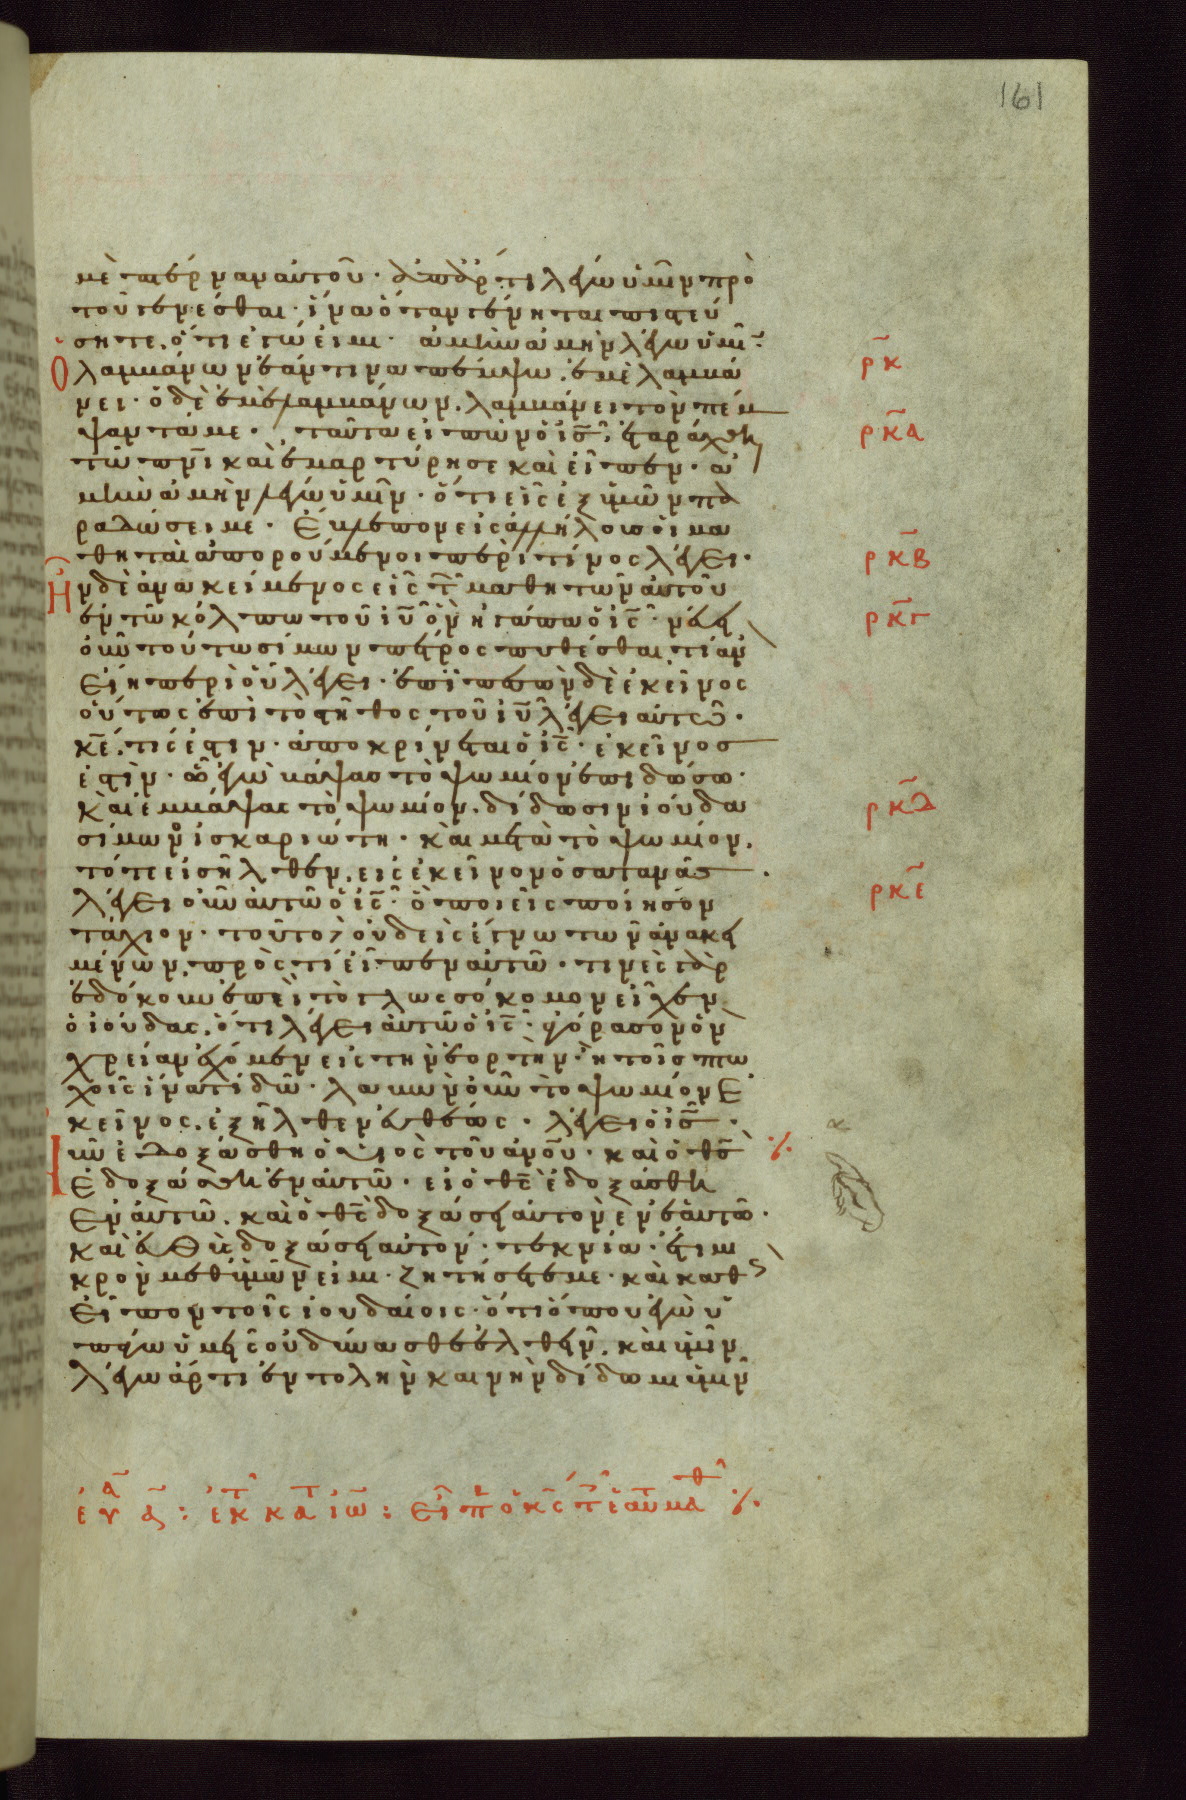 161
μὲ πτέρναν αὐτοῦ · ἀπάρτι λέγω ὑμῖν πρὸ
τοῦ γενέσθαι · ἵνα ὅταν γένηται πιστεύ
σητε, ὅτι ἐγώ εἰμι · ἀμὴν ἀμὴν λέγω ὑμῖ ·
Ὁ λαμμάνων ἐάν τινα πέμψω, ἐμὲ λαμμά
νει · ὁ δὲ ἐμὲ λαμμάνων, λαμμάνει τὸν πέμ
ψαντά με · ταῦτα εἰπὼν ὁ ις̅, ἐταράχθη
τῶ πνι̅ καὶ ἐμαρτύρησε καὶ εἶπεν · ἀ
μὴν ἀμὴν λέγω ὑμῖν · ὅτι εἷς ἐξ ὑμῶν πα
ραδώσει με · Ἔμβλεπον εἰς ἀλλήλους οἱ μα
θηταὶ ἀπορούμενοι περὶ τίνος λέγει ·
Ἦν δὲ ἀνακείμενος εἷς τ̅ μαθητῶν αὐτοῦ
ἐν τῶ κόλπω τοῦ ιυ̅ ὃν ἠγάπα ὁ ις̅ · νεύει
οὖν τούτω σίμων πέτρος πυθέσθαι, τί ἂν
εἴη περὶ οὗ λέγει · ἐπιπεσὼν δὲ ἐκεῖνος
οὕτως ἐπὶ τὸ στῆθος τοῦ ιυ̅ λέγει αὐτῶ ·
κε̅, τίς ἐστιν · ἀποκρίνεται ὁ ις̅ · ἐκεῖνος
ἐστὶν · ὧ ἐγὼ βάψας τὸ ψωμίον ἐπιδώσω ·
Καὶ ἐμβάψας τὸ ψωμίον, δίδωσιν ἰούδα
σίμωνος ἰσκαριώτη · καὶ μετὰ τὸ ψωμίον,
τότε εἰσῆλθεν, εἰς ἐκεῖνον ὁ σατανᾶς ·
λέγει οὖν αὐτῶ ὁ ις̅ · ὃ ποιεῖς ποίησον
τάχιον · τοῦτο οὐδεὶς ἔγνω τῶν ἀνακει
μένων, πρὸς τί εἶπεν αὐτῶ · τινὲς γὰρ
ἐδόκουν ἐπεὶ τὸ γλωσσόκομον εἶχεν
ὁ ἰούδας, ὅτι λέγει αὐτῶ ὁ ις̅ · ἀγόρασον ὧν
χρείαν ἔχομεν εἰς τὴν ἑορτήν · ἢ τοῖς πτω
χοῖς ἵνα τί δῶ · λαβὼν οὖν τὸ ψωμίον ἐ
κεῖνος, ἐξῆλθεν εὐθέως · λέγει ὁ ις̅ ·
Νῦν ἐδοξάσθη ὁ υἱὸς τοῦ ἀνου̅ · καὶ ὁ θς̅
ἐδοξάσθη ἐν αὐτῶ · εἰ ὁ θς̅ ἐδοξάσθη
ἐν αὐτῶ, καὶ ὁ θς̅ δοξάσει αὐτὸν ἐν ἑαυτῶ ·
καὶ εὐθὺς δοξάσει αὐτόν · τεκνία · ἔτι μι
κρὸν μεθ' ὑμῶν εἰμι · ζητήσετέ με · καὶ καθὼς
εἶπον τοῖς ἰουδαίοις · ὅτι ὅπου ἐγὼ ὑ
πάγω ὑμεῖς οὐ δύνασθε ἐλθεῖν, καὶ ὑμῖν
λέγω ἄρτι ἐντολὴν καινὴν δίδωμι ὑμῖν
ρκ̅
ρκα̅
ρκβ̅
ρκγ̅
ρκδ̅
ρκε̅